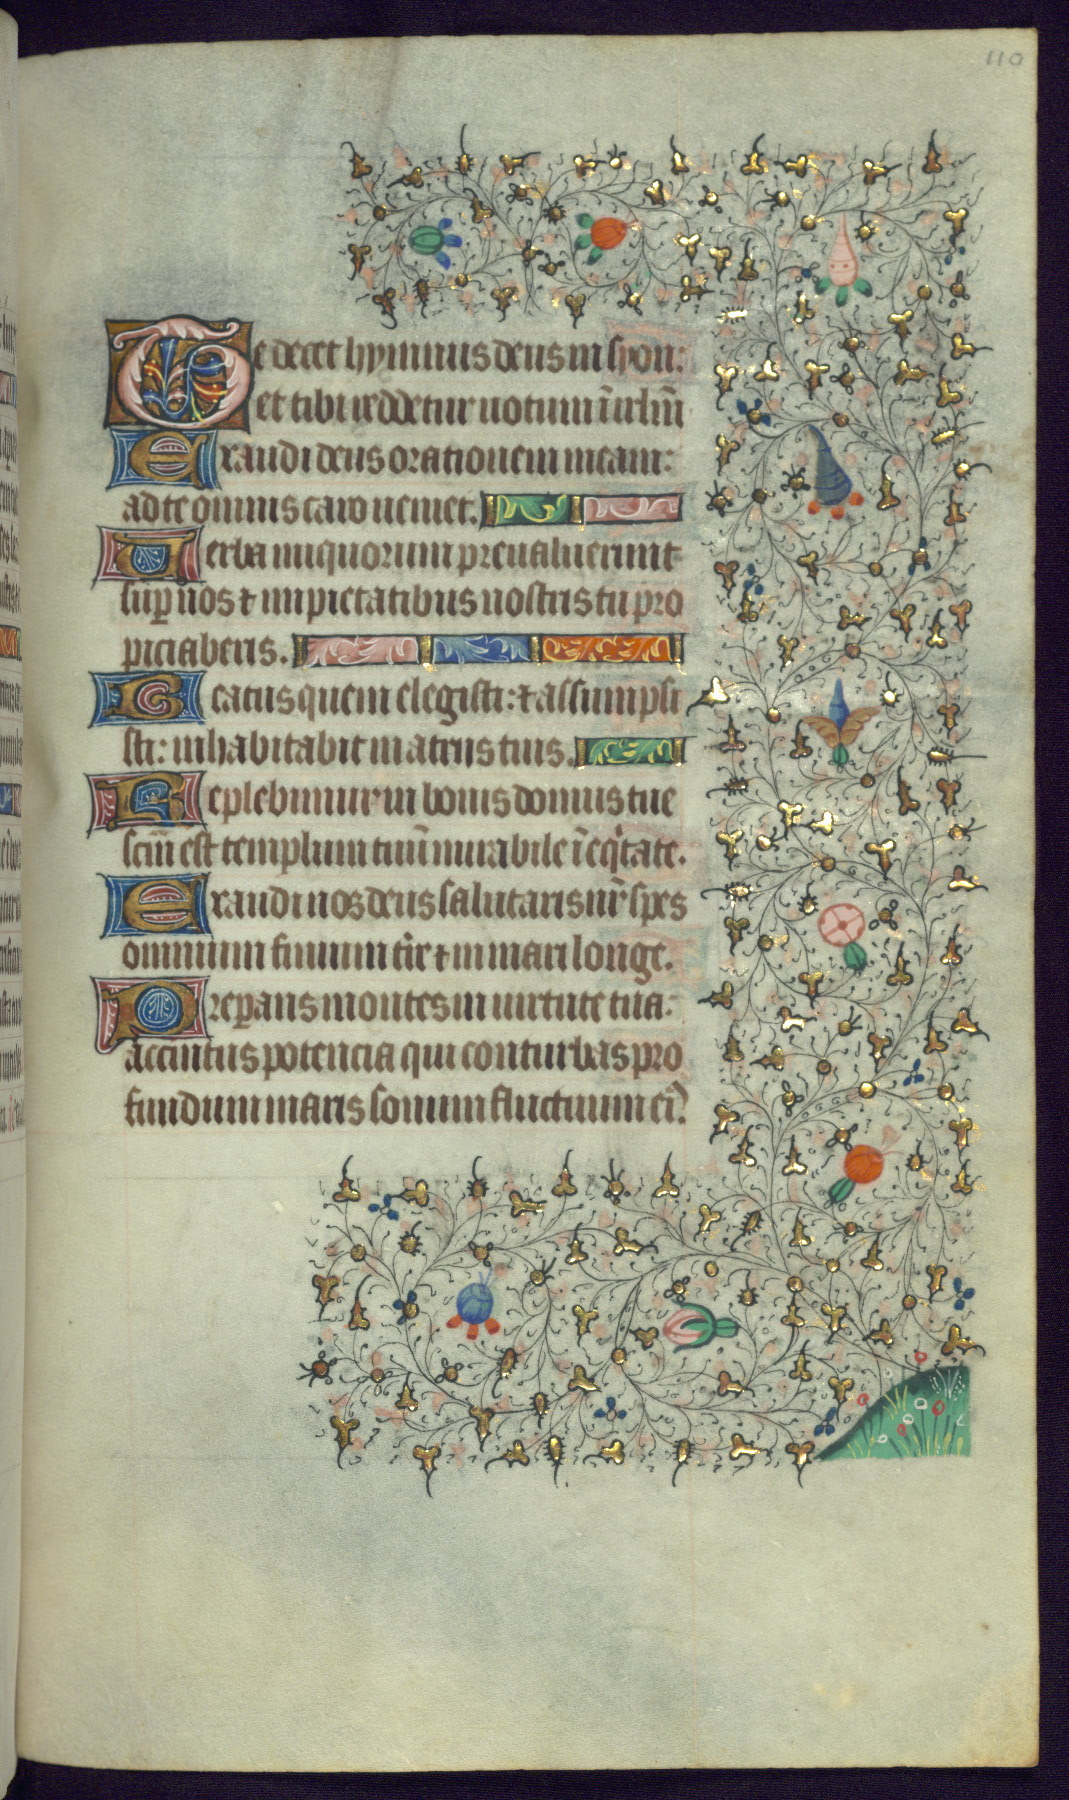 110
Te decet hymnus deus in syon:
et tibi reddetur uotum ī irlm̄
Exaudi deus orationem meam:
ad te omnis caro ueniet.
Uerba iniquorum preualuerunt
suꝑ nos ⁊ impietatibus nostris tu pro
piciaberis.
Beatus quem elegisti: ⁊ assumpsi
sti: inhabitabit in atriis tuis.
Replebimur in bonis domus tue
scm̄ est templum tuū mirabile ī eq̓tate.
Exaudi nos deus salutaris nr̄ spes
omnium finium tr̄e ⁊ in mari longe.
Preꝑans montes in uirtute tua:
accintus potencia qui conturbas pro
fundum maris sonum fluctuum eiꝰ